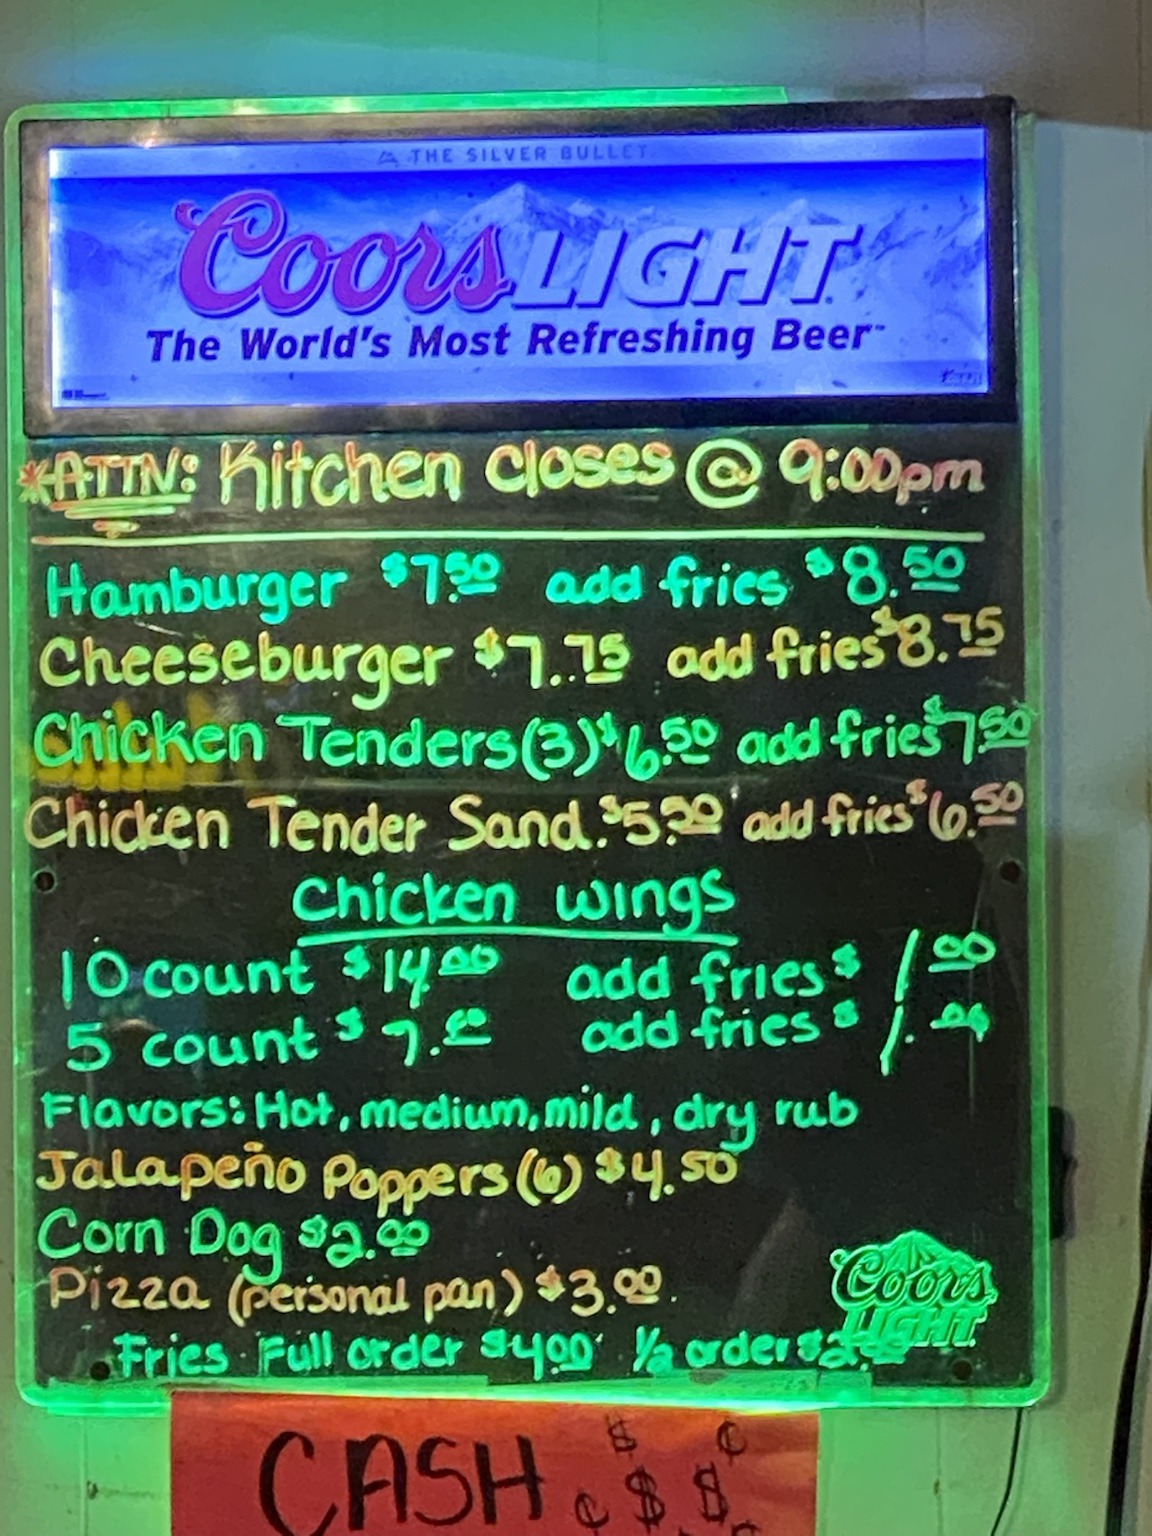 THE SILVER BULLET
Coors LIGHT
The World's Most Refreshing Beer™
*ATTN: Kitchen closes @ 9:00pm
Hamburger $7.50 add fries $8.50
Cheeseburger $7.75 add fries $8.75
Chicken Tenders (3) $6.50 add fries $7.50
Chicken Tender Sand. $5.50 add fries $6.50
Chicken wings
10 count $14.00 add fries $1.00
5 count $7.00 add fries $1.00
Flavors: Hot, medium, mild, dry rub
Jalapeño Poppers (6) $4.50
Corn Dog $2.00
Pizza (personal pan) $3.00
Coors
LIGHT
Fries Full order $4.00 1/2 order
CASH
$ ¢
¢ $ $